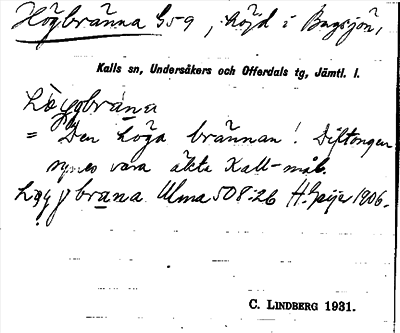 Högbränna G59, höjd i Bagsjön,
Kalls sn, Undersåkers och Offerdals tg, Jämtl. l.
= Den höga brännan! Diftongen
synes vara äkta Kall-mål.
Ulma 508:26 H. Geijer 1906.
C. LINDBERG 1931.